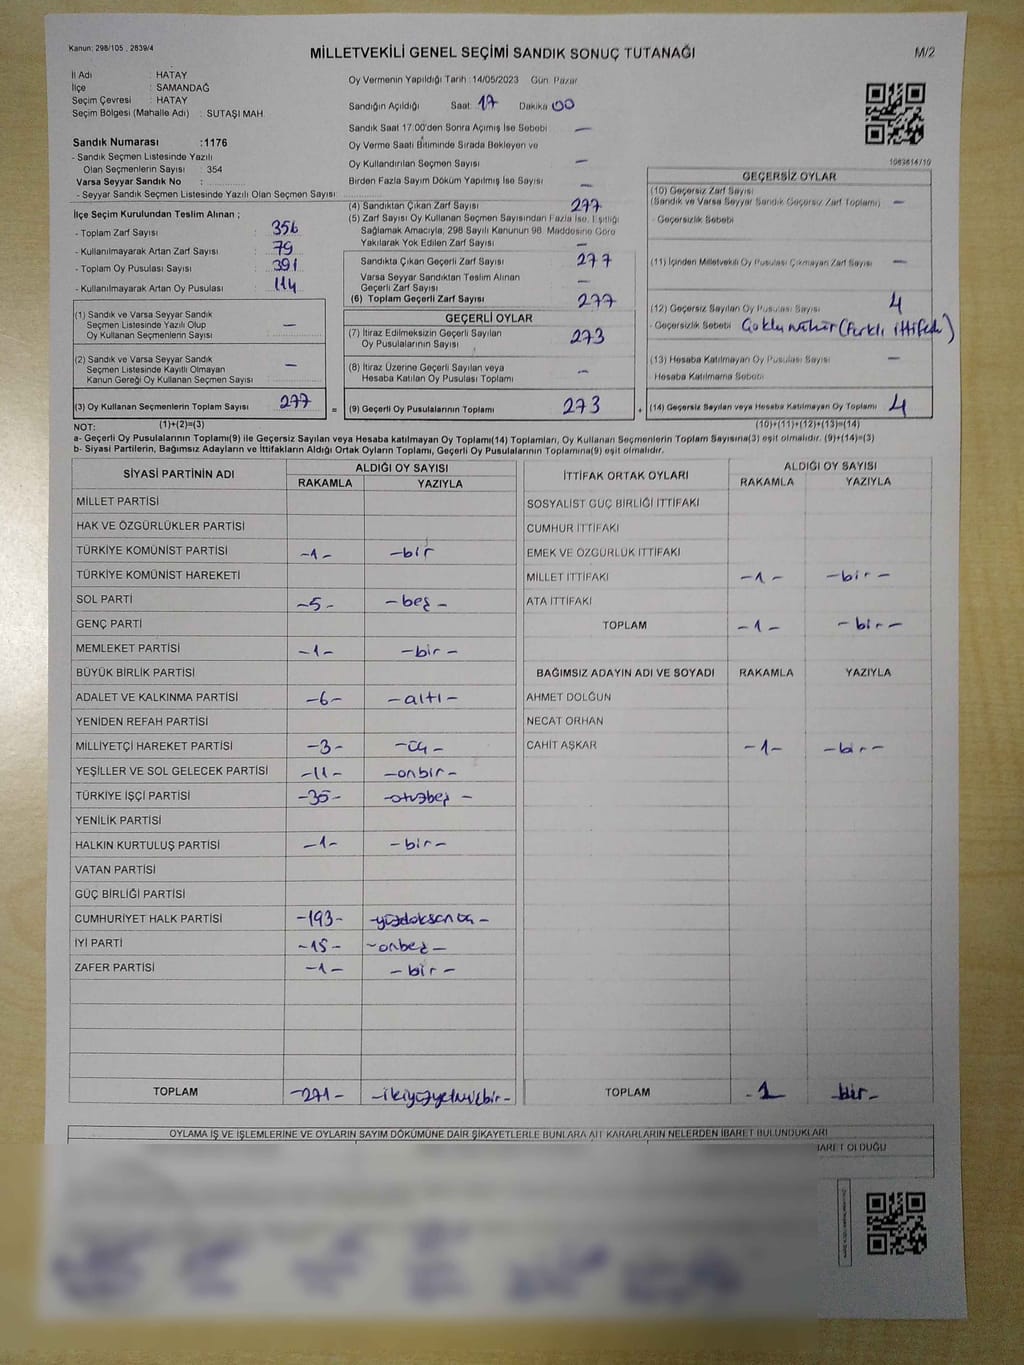 Kanun: 298/105 , 2839/4
MİLLETVEKİLİ GENEL SEÇİMİ SANDIK SONUÇ TUTANAĞI
M/2
İl Adı : HATAY
İlçe : SAMANDAĞ
Seçim Çevresi : HATAY
Seçim Bölgesi (Mahalle Adı) : SUTAŞI MAH.
Oy Vermenin Yapıldığı Tarih :14/05/2023 Gün: Pazar
Sandığın Açıldığı Saat: 17 Dakika 00
Sandık Saat 17:00'den Sonra Açımış İse Sebebi —
Oy Verme Saati Bitiminde Sırada Bekleyen ve
Oy Kullandırılan Seçmen Sayısı —
Birden Fazla Sayım Döküm Yapılmış İse Sayısı —
Sandık Numarası :1176
- Sandık Seçmen Listesinde Yazılı
Olan Seçmenlerin Sayısı : 354
Varsa Seyyar Sandık No :
- Seyyar Sandık Seçmen Listesinde Yazılı Olan Seçmen Sayısı:
İlçe Seçim Kurulundan Teslim Alınan ;
- Toplam Zarf Sayısı : 356
- Kullanılmayarak Artan Zarf Sayısı : 79
- Toplam Oy Pusulası Sayısı : 391
- Kullanılmayarak Artan Oy Pusulası : 114
(1) Sandık ve Varsa Seyyar Sandık
Seçmen Listesinde Yazılı Olup
Oy Kullanan Seçmenlerin Sayısı —
(2) Sandık ve Varsa Seyyar Sandık
Seçmen Listesinde Kayıtlı Olmayan
Kanun Gereği Oy Kullanan Seçmen Sayısı —
(3) Oy Kullanan Seçmenlerin Toplam Sayısı 277
(1)+(2)=(3)
(4) Sandıktan Çıkan Zarf Sayısı 277
(5) Zarf Sayısı Oy Kullanan Seçmen Sayısından Fazla İse, Eşitliği
Sağlamak Amacıyla; 298 Sayılı Kanunun 98. Maddesine Göre
Yakılarak Yok Edilen Zarf Sayısı —
Sandıkta Çıkan Geçerli Zarf Sayısı 277
Varsa Seyyar Sandıktan Teslim Alınan
Geçerli Zarf Sayısı —
(6) Toplam Geçerli Zarf Sayısı 277
GEÇERLİ OYLAR
(7) İtiraz Edilmeksizin Geçerli Sayılan
Oy Pusulalarının Sayısı 273
(8) İtiraz Üzerine Geçerli Sayılan veya
Hesaba Katılan Oy Pusulası Toplamı —
= (9) Geçerli Oy Pusulalarının Toplamı 273 +
1063614/10
GEÇERSİZ OYLAR
(10) Geçersiz Zarf Sayısı
(Sandık ve Varsa Seyyar Sandık Geçersiz Zarf Toplamı) —
- Geçersizlik Sebebi
(11) İçinden Milletvekili Oy Pusulası Çıkmayan Zarf Sayısı —
(12) Geçersiz Sayılan Oy Pusulası Sayısı 4
- Geçersizlik Sebebi Çoklu mühür (Farklı ittifak)
(13) Hesaba Katılmayan Oy Pusulası Sayısı —
Hesaba Katılmama Sebebi
(14) Geçersiz Sayılan veya Hesaba Katılmayan Oy Toplamı 4
(10)+(11)+(12)+(13)=(14)
NOT:
a- Geçerli Oy Pusulalarının Toplamı(9) ile Geçersiz Sayılan veya Hesaba katılmayan Oy Toplamı(14) Toplamları, Oy Kullanan Seçmenlerin Toplam Sayısına(3) eşit olmalıdır. (9)+(14)=(3)
b- Siyasi Partilerin, Bağımsız Adayların ve İttifakların Aldığı Ortak Oyların Toplamı, Geçerli Oy Pusulalarının Toplamına(9) eşit olmalıdır.
SİYASİ PARTİNİN ADI ALDIĞI OY SAYISI
RAKAMLA YAZIYLA
MİLLET PARTİSİ
HAK VE ÖZGÜRLÜKLER PARTİSİ
TÜRKİYE KOMÜNİST PARTİSİ -1- -bir
TÜRKİYE KOMÜNİST HAREKETİ
SOL PARTİ -5- -beş-
GENÇ PARTİ
MEMLEKET PARTİSİ -1- -bir-
BÜYÜK BİRLİK PARTİSİ
ADALET VE KALKINMA PARTİSİ -6- -altı-
YENİDEN REFAH PARTİSİ
MİLLİYETÇİ HAREKET PARTİSİ -3- -üç-
YEŞİLLER VE SOL GELECEK PARTİSİ -11- -onbir-
TÜRKİYE İŞÇİ PARTİSİ -35- -otuzbeş-
YENİLİK PARTİSİ
HALKIN KURTULUŞ PARTİSİ -1- -bir-
VATAN PARTİSİ
GÜÇ BİRLİĞİ PARTİSİ
CUMHURİYET HALK PARTİSİ -193- -yüzdoksanüç-
İYİ PARTİ -15- -onbeş-
ZAFER PARTİSİ -1- -bir-
TOPLAM -271- -ikiyüzyetmişbir-
İTTİFAK ORTAK OYLARI ALDIĞI OY SAYISI
RAKAMLA YAZIYLA
SOSYALİST GÜÇ BİRLİĞİ İTTİFAKI
CUMHUR İTTİFAKI
EMEK VE ÖZGÜRLÜK İTTİFAKI
MİLLET İTTİFAKI -1- -bir-
ATA İTTİFAKI
TOPLAM -1- -bir-
BAĞIMSIZ ADAYIN ADI VE SOYADI RAKAMLA YAZIYLA
AHMET DOLĞUN
NECAT ORHAN
CAHİT AŞKAR -1- -bir-
TOPLAM -1 -bir-
OYLAMA İŞ VE İŞLEMLERİNE VE OYLARIN SAYIM DÖKÜMÜNE DAİR ŞİKAYETLERLE BUNLARA AİT KARARLARIN NELERDEN İBARET BULUNDUKLARI
BARET OLDUĞU